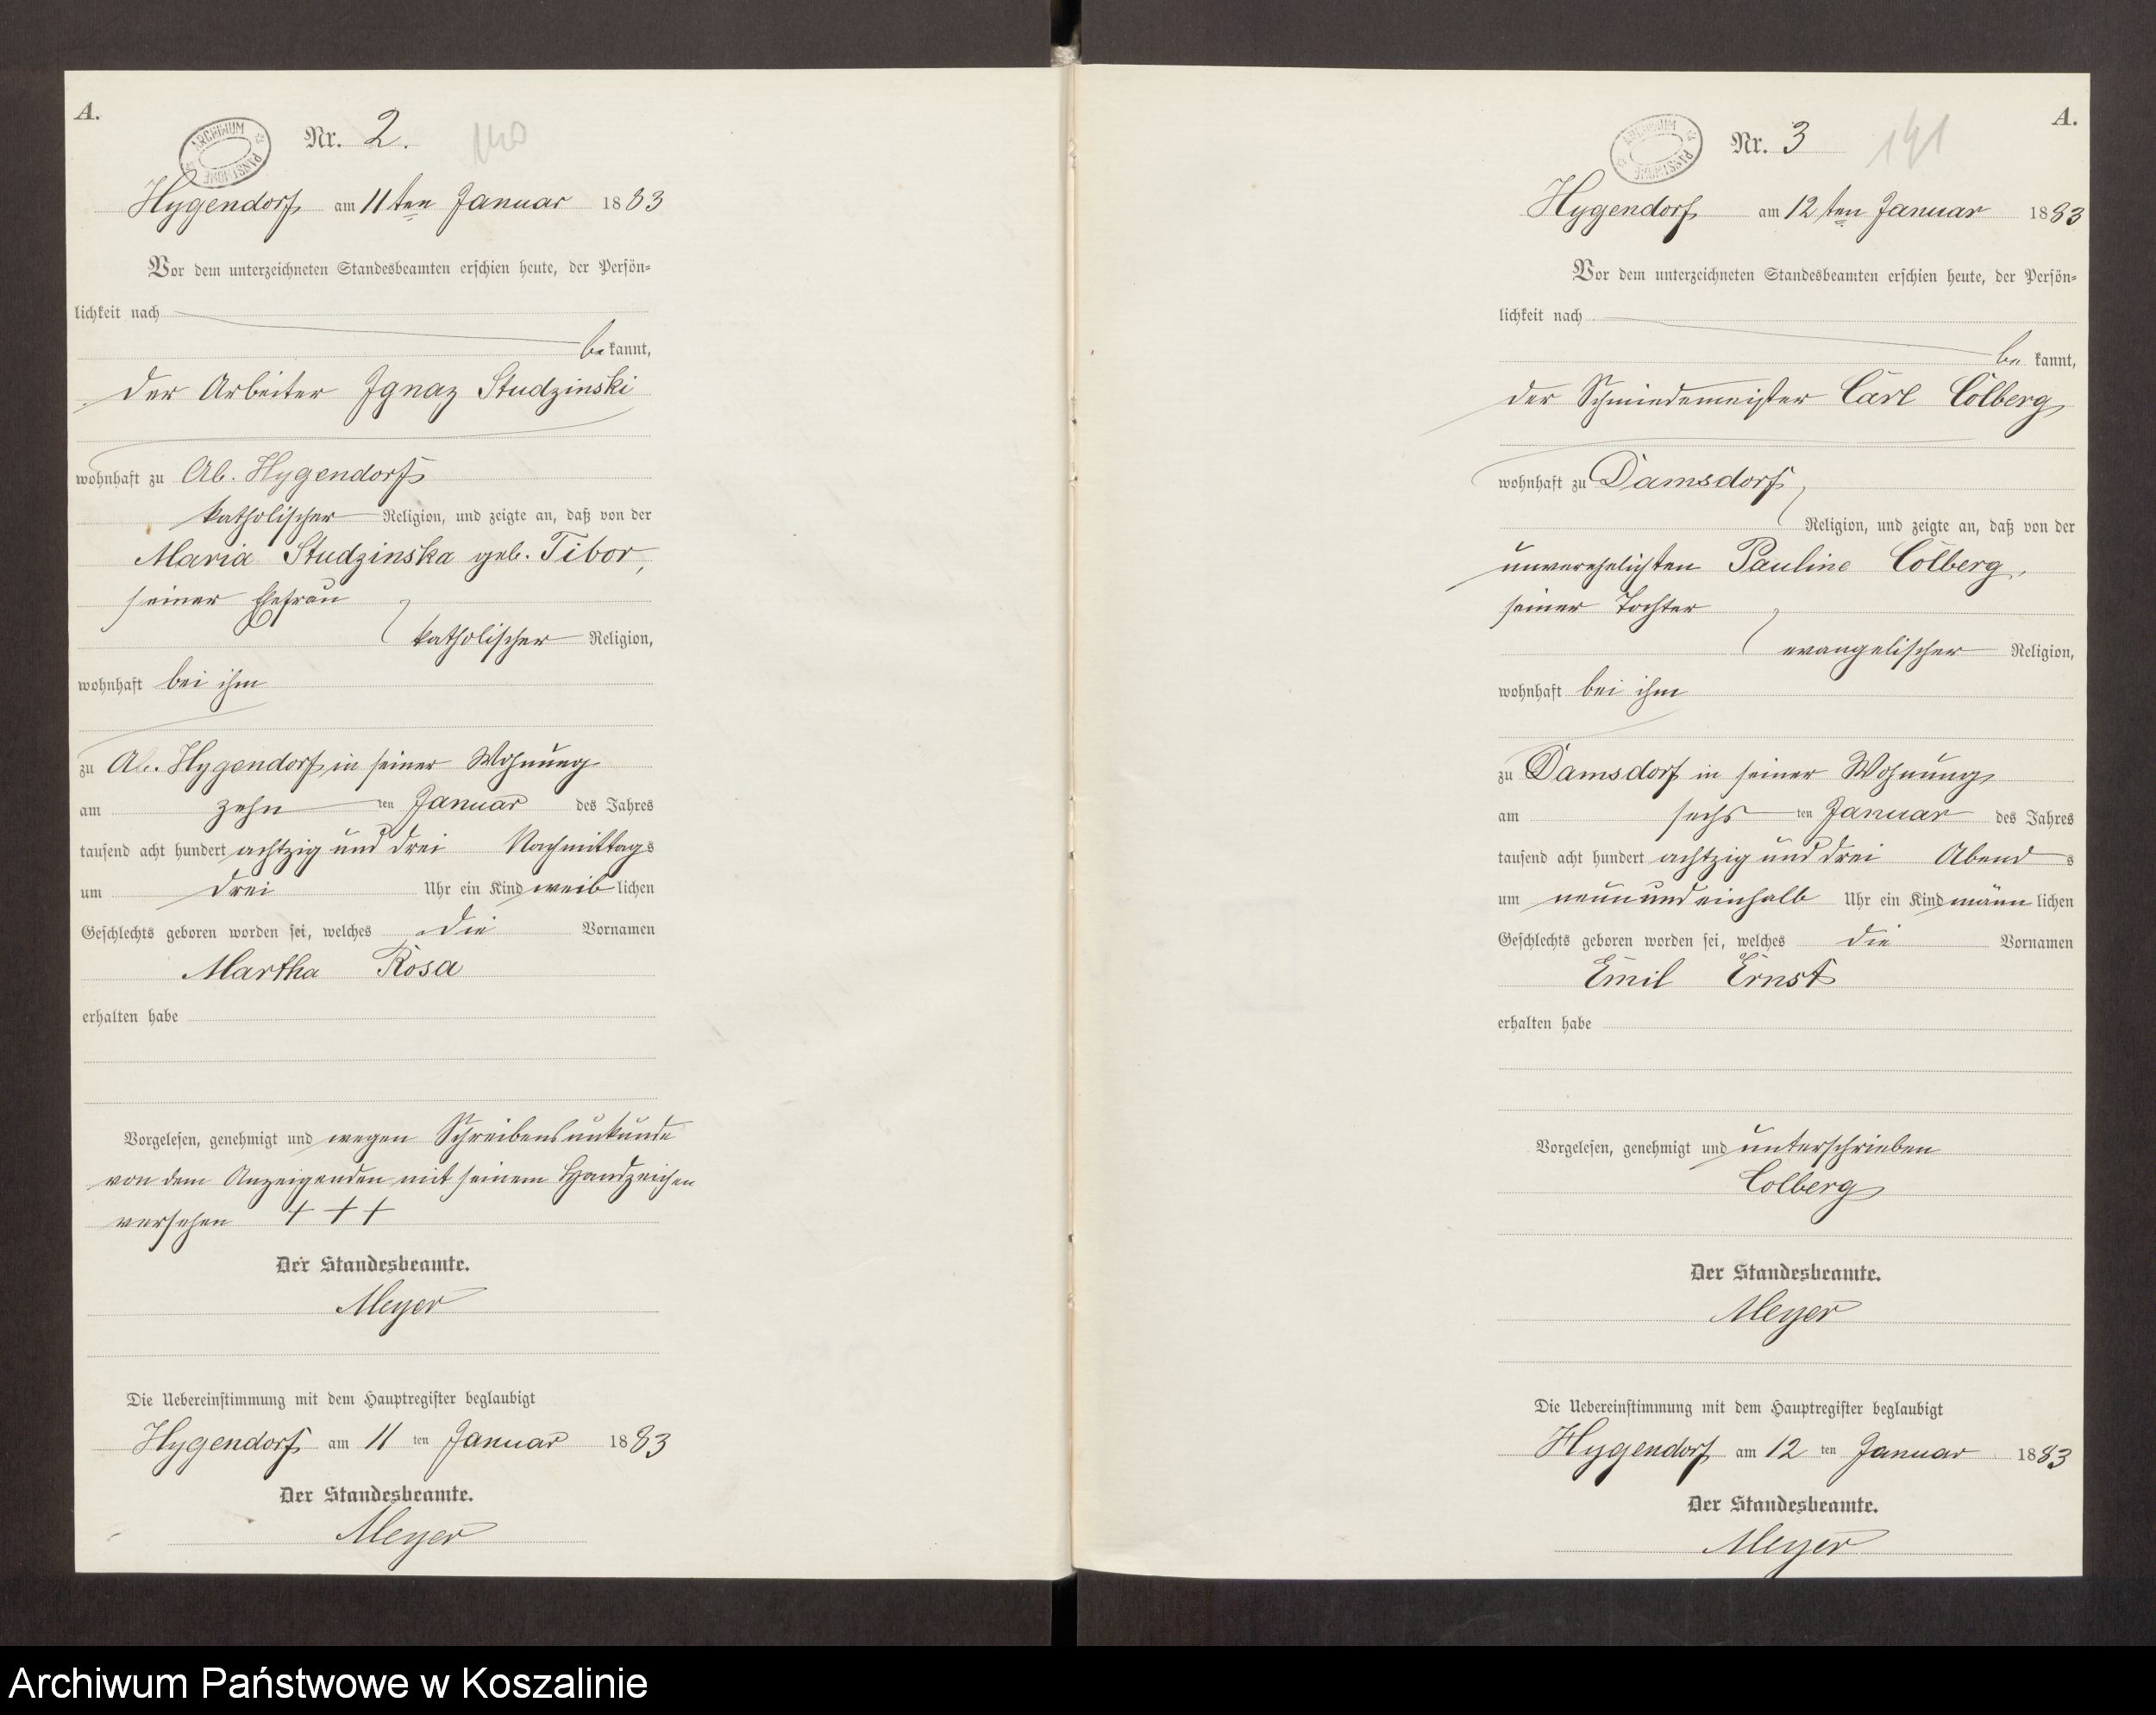 A.
ARCHIWUM PAŃSTWOWE
Nr. 2.
140
Hygendorf am 11ten Januar 1883
Vor dem unterzeichneten Standesbeamten erschien heute, der Persön-
lichkeit nach
be kannt,
der Arbeiter Ignaz Studzinski
wohnhaft zu Ab. Hygendorf
katholischer Religion, und zeigte an, daß von der
Maria Studzinska geb. Tibor,
seiner Ehefrau
katholischer Religion,
wohnhaft bei ihm
zu Ab. Hygendorf in seiner Wohnung
am zehn ten Januar des Jahres
tausend acht hundert achtzig und drei Nachmittags
um drei Uhr ein Kind weib lichen
Geschlechts geboren worden sei, welches die Vornamen
Martha Rosa
erhalten habe
Vorgelesen, genehmigt und wegen Schreibensunkunde
von dem Anzeigenden mit seinem Handzeichen
versehen + + +
Der Standesbeamte.
Meyer
Die Uebereinstimmung mit dem Hauptregister beglaubigt
Hygendorf am 11 ten Januar 1883
Der Standesbeamte.
Meyer
A.
ARCHIWUM PAŃSTWOWE
Nr. 3
141
Hygendorf am 12ten Januar 1883
Vor dem unterzeichneten Standesbeamten erschien heute, der Persön-
lichkeit nach
be kannt,
der Schmiedemeister Carl Colberg
wohnhaft zu Damsdorf
Religion, und zeigte an, daß von der
unverehelichten Pauline Colberg,
seiner Tochter
evangelischer Religion,
wohnhaft bei ihm
zu Damsdorf in seiner Wohnung
am sechs ten Januar des Jahres
tausend acht hundert achtzig und drei Abend s
um neun und einhalb Uhr ein Kind männ lichen
Geschlechts geboren worden sei, welches die Vornamen
Emil Ernst
erhalten habe
Vorgelesen, genehmigt und unterschrieben
Colberg
Der Standesbeamte.
Meyer
Die Uebereinstimmung mit dem Hauptregister beglaubigt
Hygendorf am 12 ten Januar 1883
Der Standesbeamte.
Meyer
Archiwum Państwowe w Koszalinie